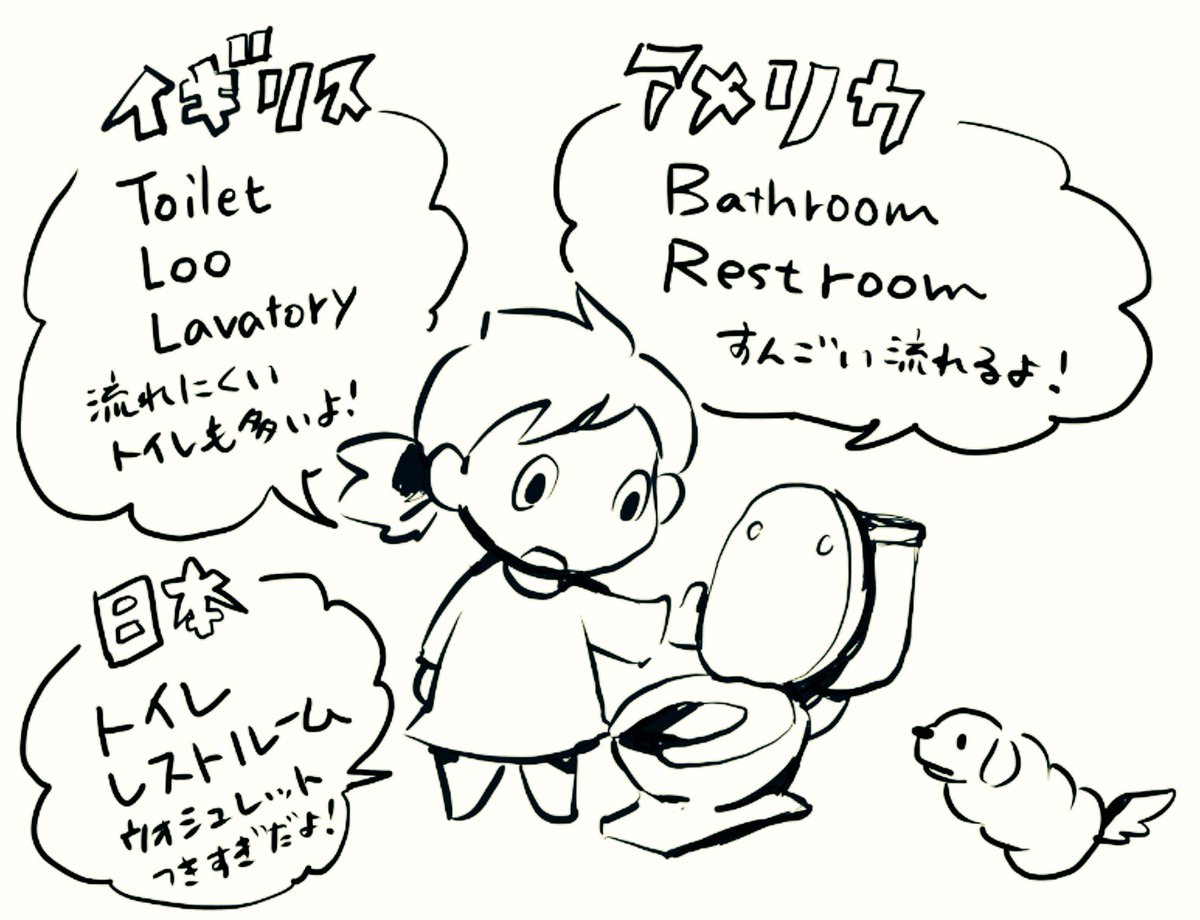 イギリス
Toilet
Loo
Lavatory
流れにくい
トイレも多いよ!
アメリカ
Bathroom
Restroom
すんごい流れるよ!
日本
トイレ
レストルーム
ウォシュレット
つきすぎだよ!